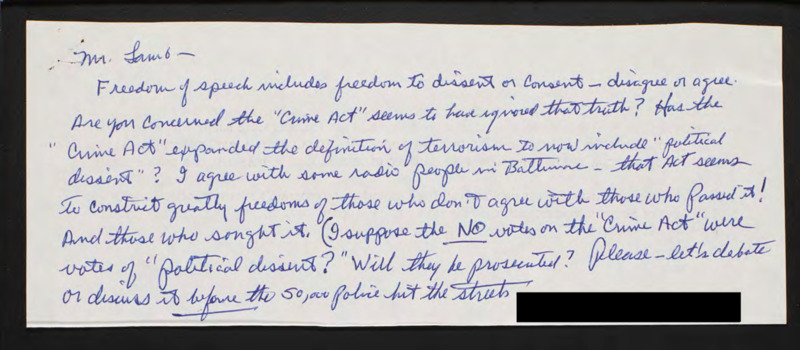 Mr. Lamb —
Freedom of speech includes freedom to dissent or consent — disagree or agree.
Are you concerned the "Crime Act" seems to have ignored that truth? Has the
"Crime Act" expanded the definition of terrorism to now include "political
dissent"? I agree with some radio people in Baltimore — that Act seems
to constrict greatly freedoms of those who don't agree with those who passed it!
And those who sought it. (I suppose the NO votes on the "Crime Act" were
votes of "political dissent?" Will they be prosecuted? Please — let's debate
or discuss it before the 50,000 police hit the streets